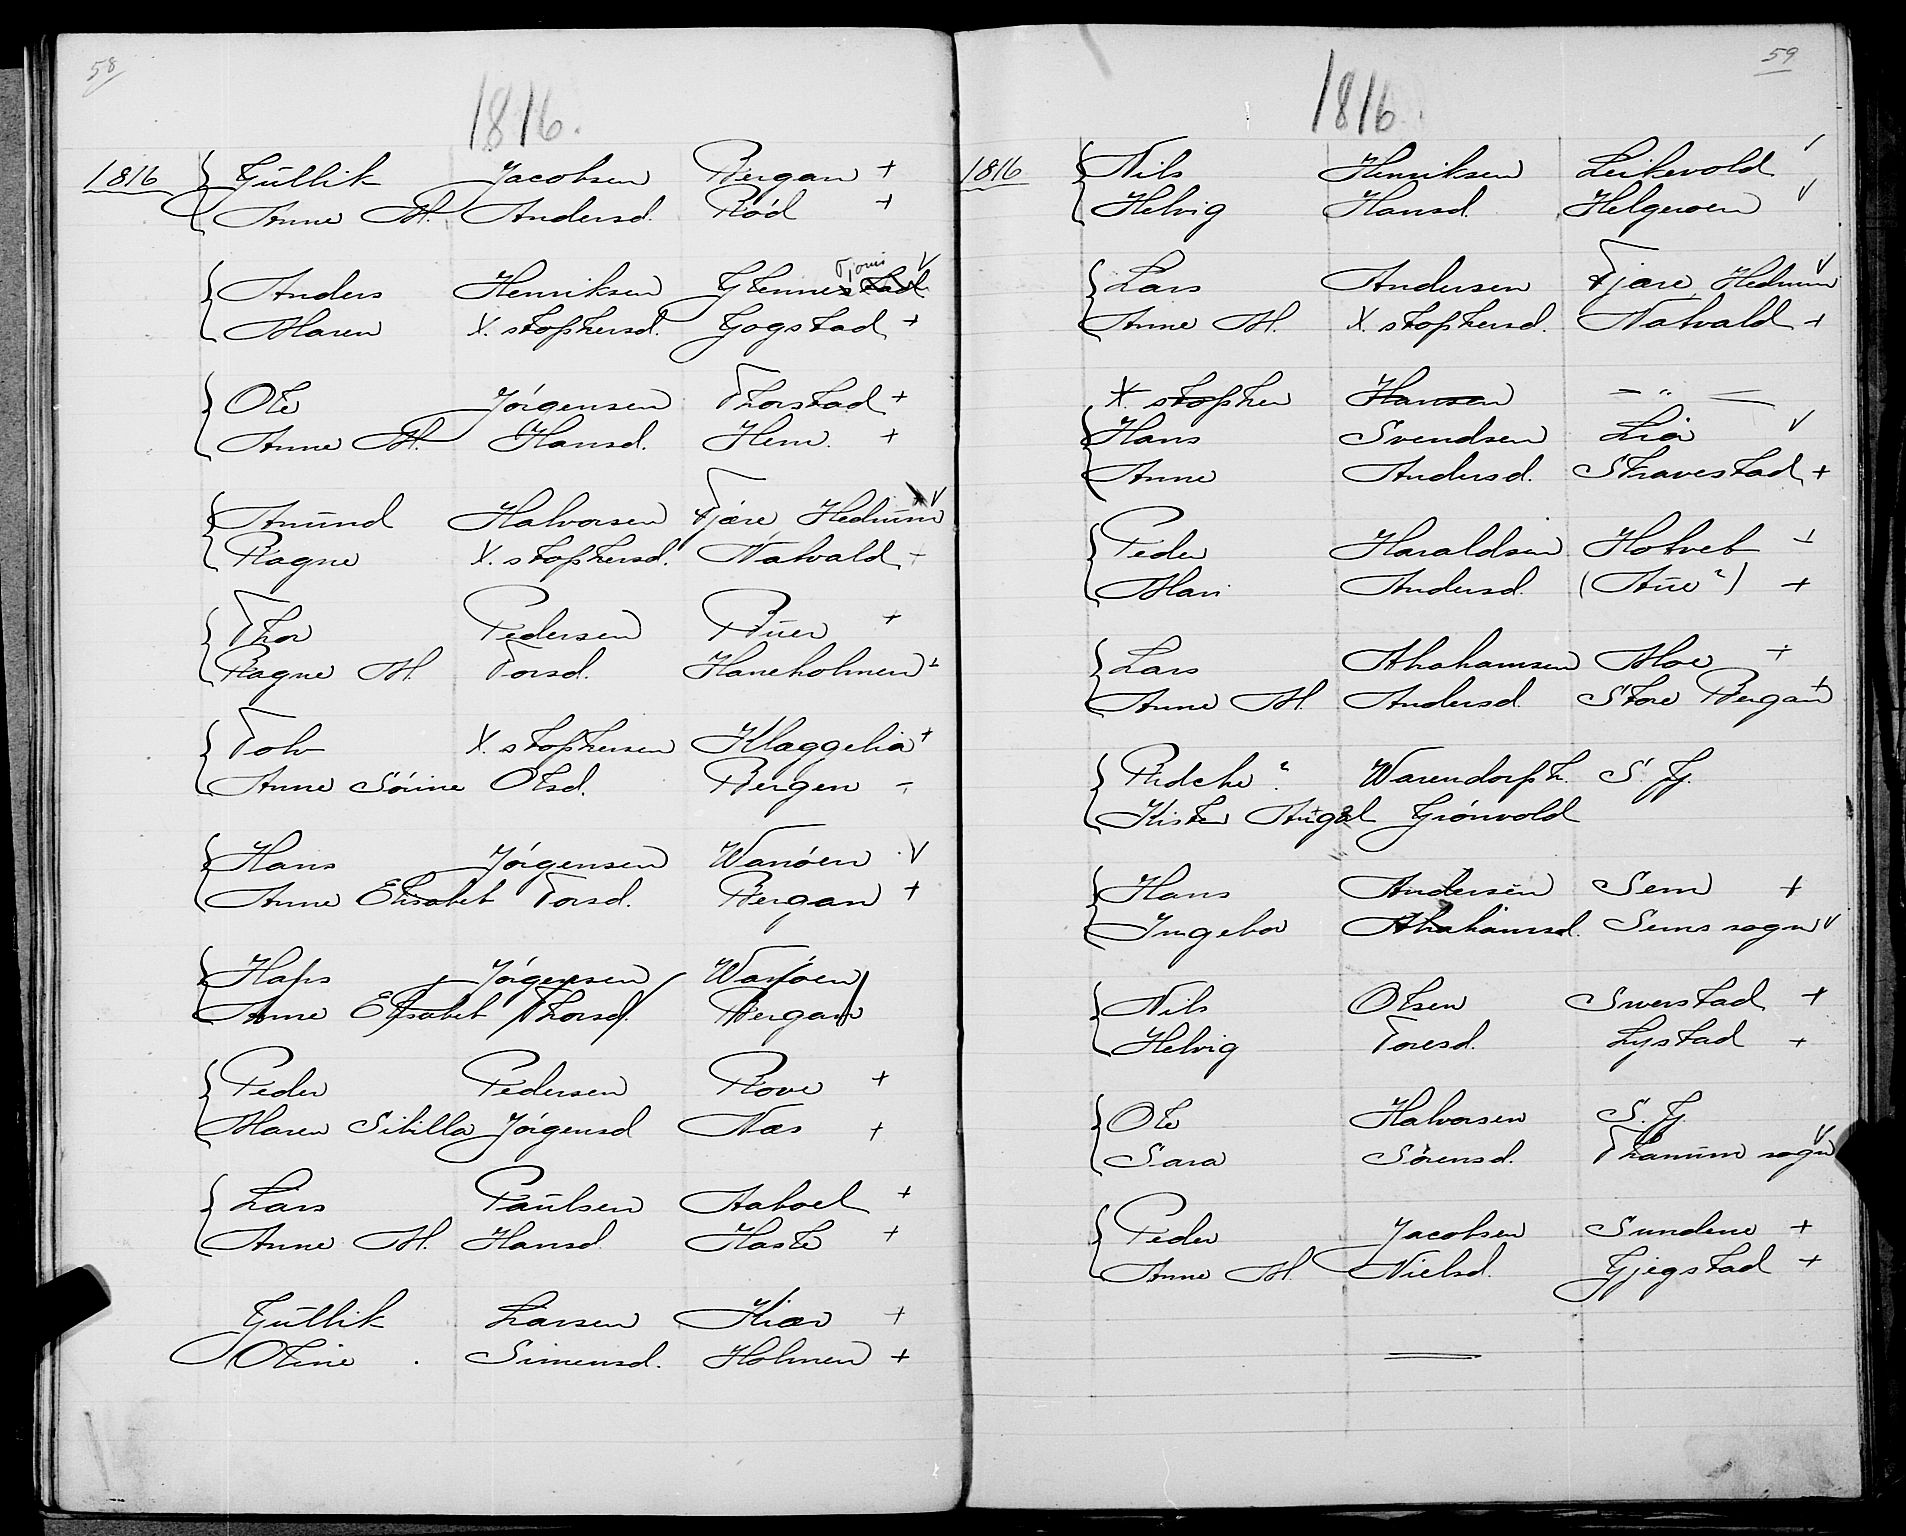 58
1816.
1816 Gullik Jacobsen Bergan +
Anne M. Andersd. Rød +
Anders Henriksen Glennes Tjøm v
Maren X.stophersd. Gogstad +
Ole Jørgensen Thorstad +
Anne M. Hansd. Hem. +
Amund Halvorsen Fjære Hedrum v
Ragne X.stophersd. Natvald +
Thor Pedersen Buer +
Ragne M. Torsd. Haneholmen +
Tolv X.stophersen Klaggelia +
Anne Sörine Olsd. Bergen +
Hans Jørgensen Warøen v
Anne Elisabet Torsd. Bergan +
Hans Jørgensen Warøen
Anne Elisabet Thorsd. Bergan
Peder Pedersen Rove +
Maren Sibilla Jørgensd Næs +
Lars Paulsen Aavoel +
Anne M. Hansd. Hasle +
Gullik Larsen Kiær +
Oline . Simensd. Holmen +
59
1816.
1816 Nils Henriksen Leikevold v
Helvig Hansd. Helgeroen v
Lars Andersen Fjære, Hedrum v
Anne M. X.stophersd. Natvald +
X.stopher Hansen – „ –
Hans Svendsen Lia v
Anne Andersd. Skravestad +
Peder Haraldsen Hotvet +
Mari Andersd. (Aue?) +
Lars Abrahamsen Moe +
Anne M. Andersd. Store Bergan +
Ridche? Warendorph. S. Fj.
Kisten August Grönvold
Hans Andersen Sem +
Ingebor Abrahamsd. Sems sogn v
Nils Olsen Swerstad +
Helvig Toresd. Lystad +
Ole Halvorsen S. Fj.
Sara Sörensd. Thanum sogn v
Peder Jacobsen Sundene +
Anne M. Nielsd. Gjegstad +